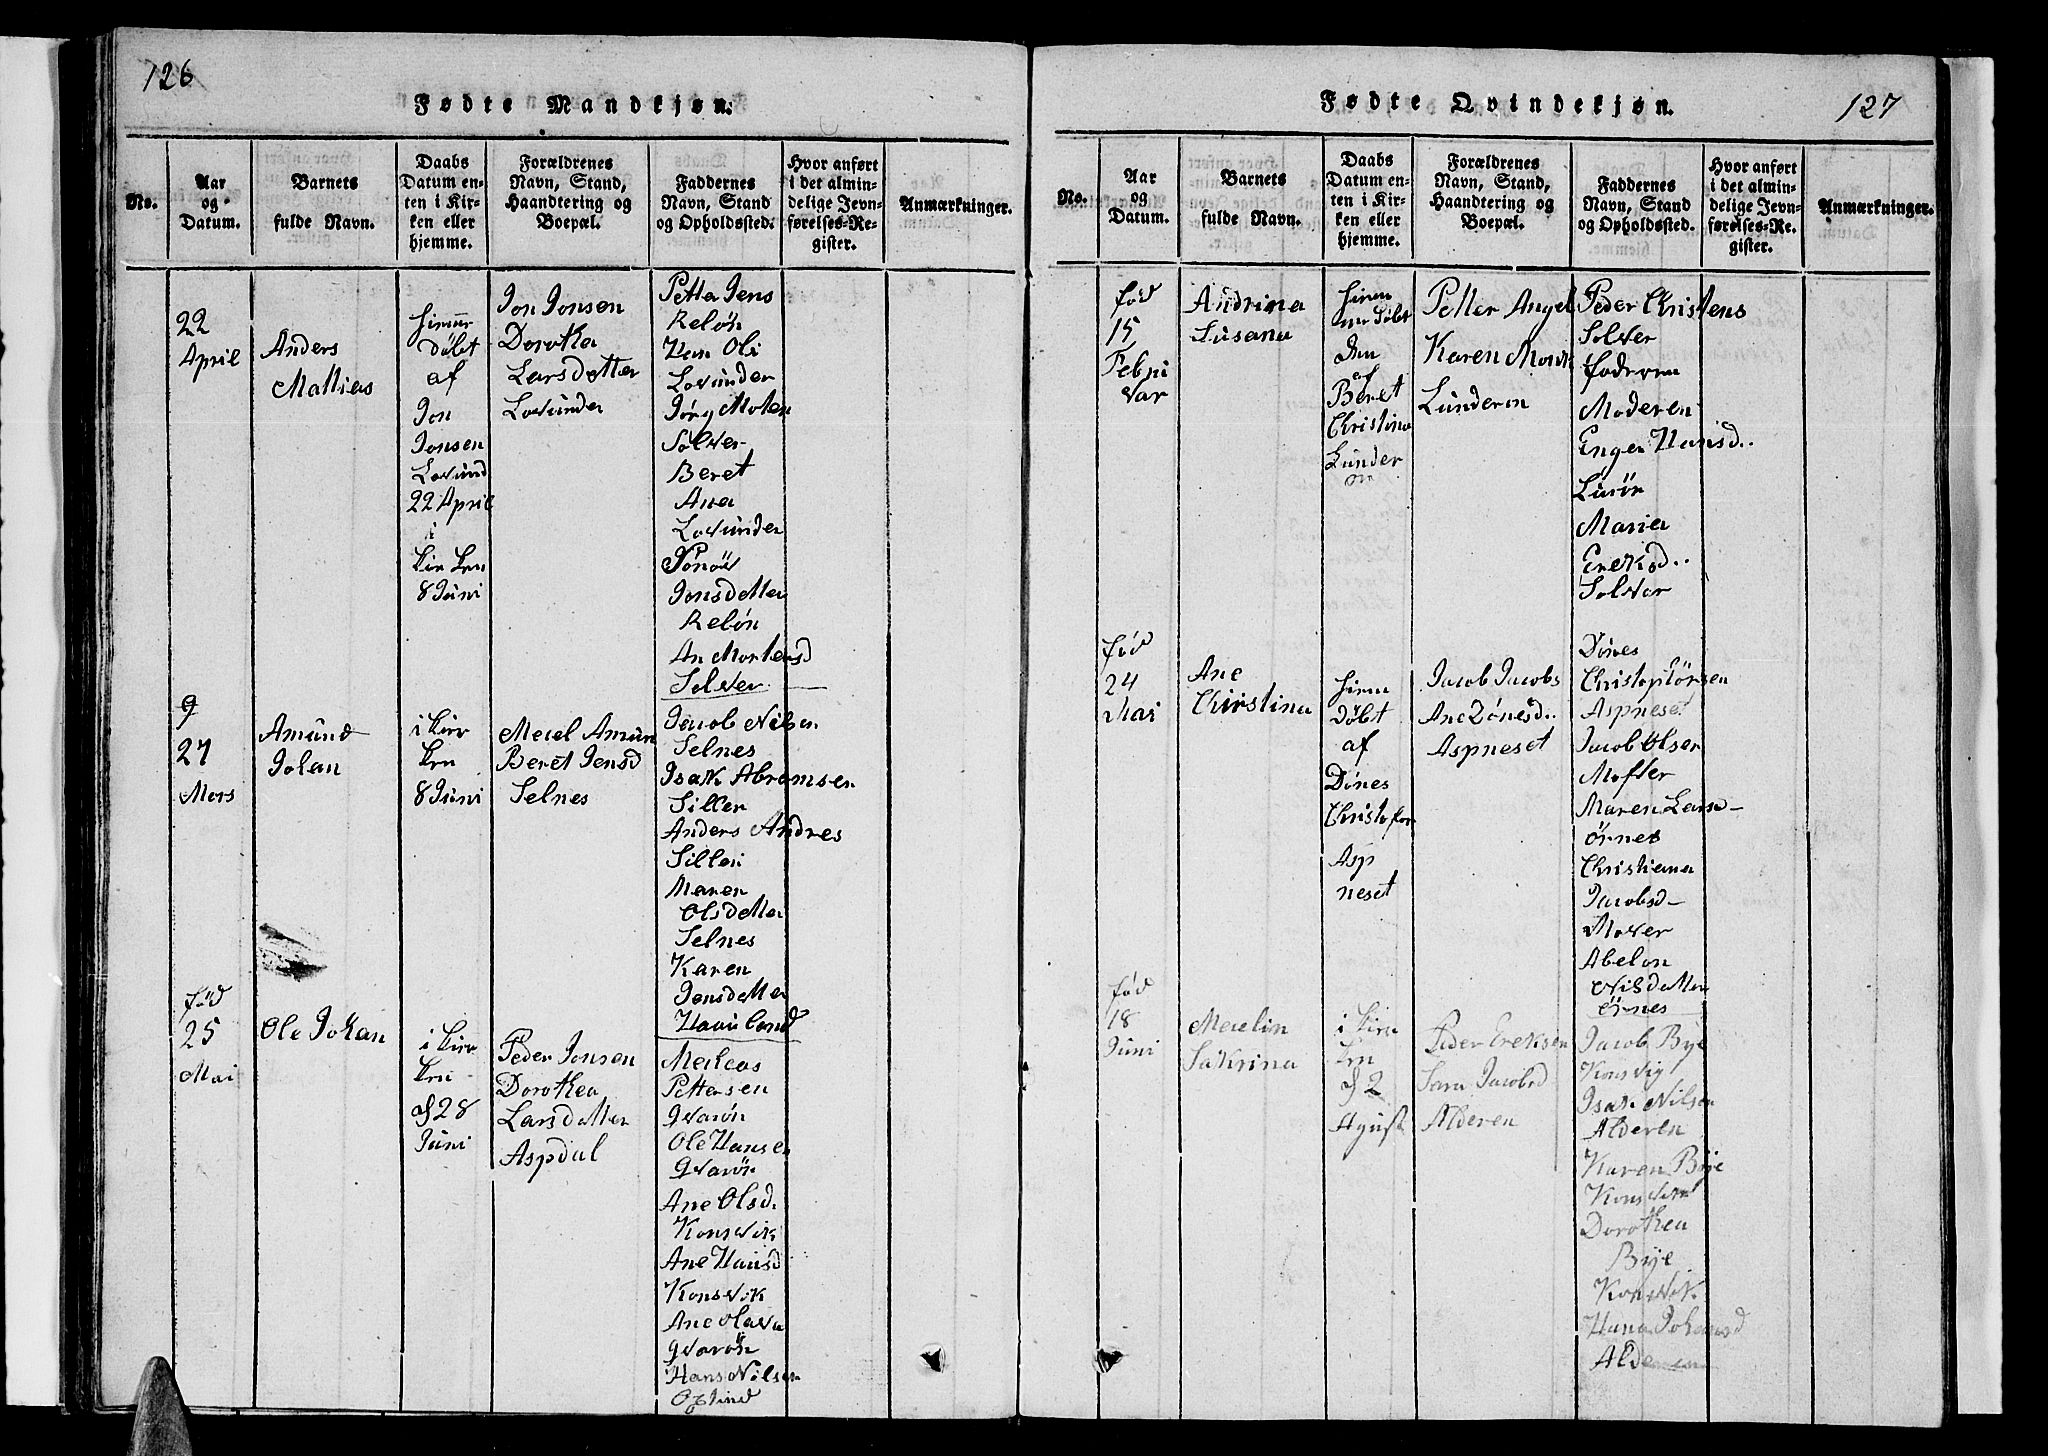 126
Fødte Mandkjøn.
No.
Aar
og
Datum.
Barnets
fulde Navn.
Daabs
Datum en-
ten i Kir-
ken eller
hjemme.
Forældrenes
Navn, Stand,
Haandtering og
Boepæl.
Faddernes
Navn, Stand
og Opholdssted.
Hvor anført
i det almin-
delige Jevn-
førelses-Re-
gister.
Anmærkninger.
22
April
Anders
Mathias
døbt
af
Jon
Jonsen
Lovund
22 April
i
Kirken
8 Juni
Jon Jonsen
Dorothea
Larsdatter
Lovunden
Petter Jens
Reløn
Han Oli
Lovunden
Jørg Moten
Sølver
Beret
Ana
Lovunden
Jonsdatter
Reløn
An Mortensd
Selver
9
27
Mers
Amund
Johan
i Kirr
ken
8 Juni
Meiel Amun
Beret Jensd
Selnes
Jacob Nilsen
Selnes
Isak Abramsen
Siller
Anders Andres
Silleri
Maren
Olsdatter
Selnes
Karen
Jensdatter
Haui land
fød
25
Mai
Ole Johan
i Kirr
ken
d 28
Juni
Peder Jonsen
Dorothea
Larsdatter
Aspdal
Pettersen
Gvarøn
Ole Hansen
Gvarøn
Ane Olsd.
Konsvik
Ane Hansd
Konsvik
Ane Olava
Gvarøn
Hans Nilsen
127
Fødte Qvindekjøn.
No.
Aar
og
Datum.
Barnets
fulde Navn.
Daabs
Datum en-
ten i Kir-
ken eller
hjemme.
Forældrenes
Navn, Stand,
Haandtering og
Boepæl.
Faddernes
Navn, Stand
og Opholdssted.
Hvor anført
i det almin-
delige Jevn-
førelses-Re-
gister.
Anmærkninger.
fød
15
Febru
var
Andrina
Susana
døbt
den
af
Beret
Christina
Lunder
on
Petter Angel
Karen Monk
Lunderon
Peder Christens
Solver
faderen
Moderen
Enger Hansd..
Luiøn
Maria
Ereksd..
Solvor
fød
24
Mai
Ane
Christina
døbt
af
Dönes
Christofor
Asp
neset
Jacob Jacobs
Ane Zönesd..
Aspneset
Dönes
Aspneset
Jacob Olsen
Mofter
Maren Larsd-
Örnes
Christiana
Jacobsd-
Mover
Abelon
Nilsdatter
Örnes
fød
18
Juni
Meielin
Sakrina
i Kirr
ken
d 2
Agust
Peder Ereksen
Sara Jacobsd
Alderen
Jacob Bye
Konsvig
Isak Nilsen
Alderen
Karen Bye
Konsvik
Dorothea
Bye
Konsvik
Hana Johansd
Alderen